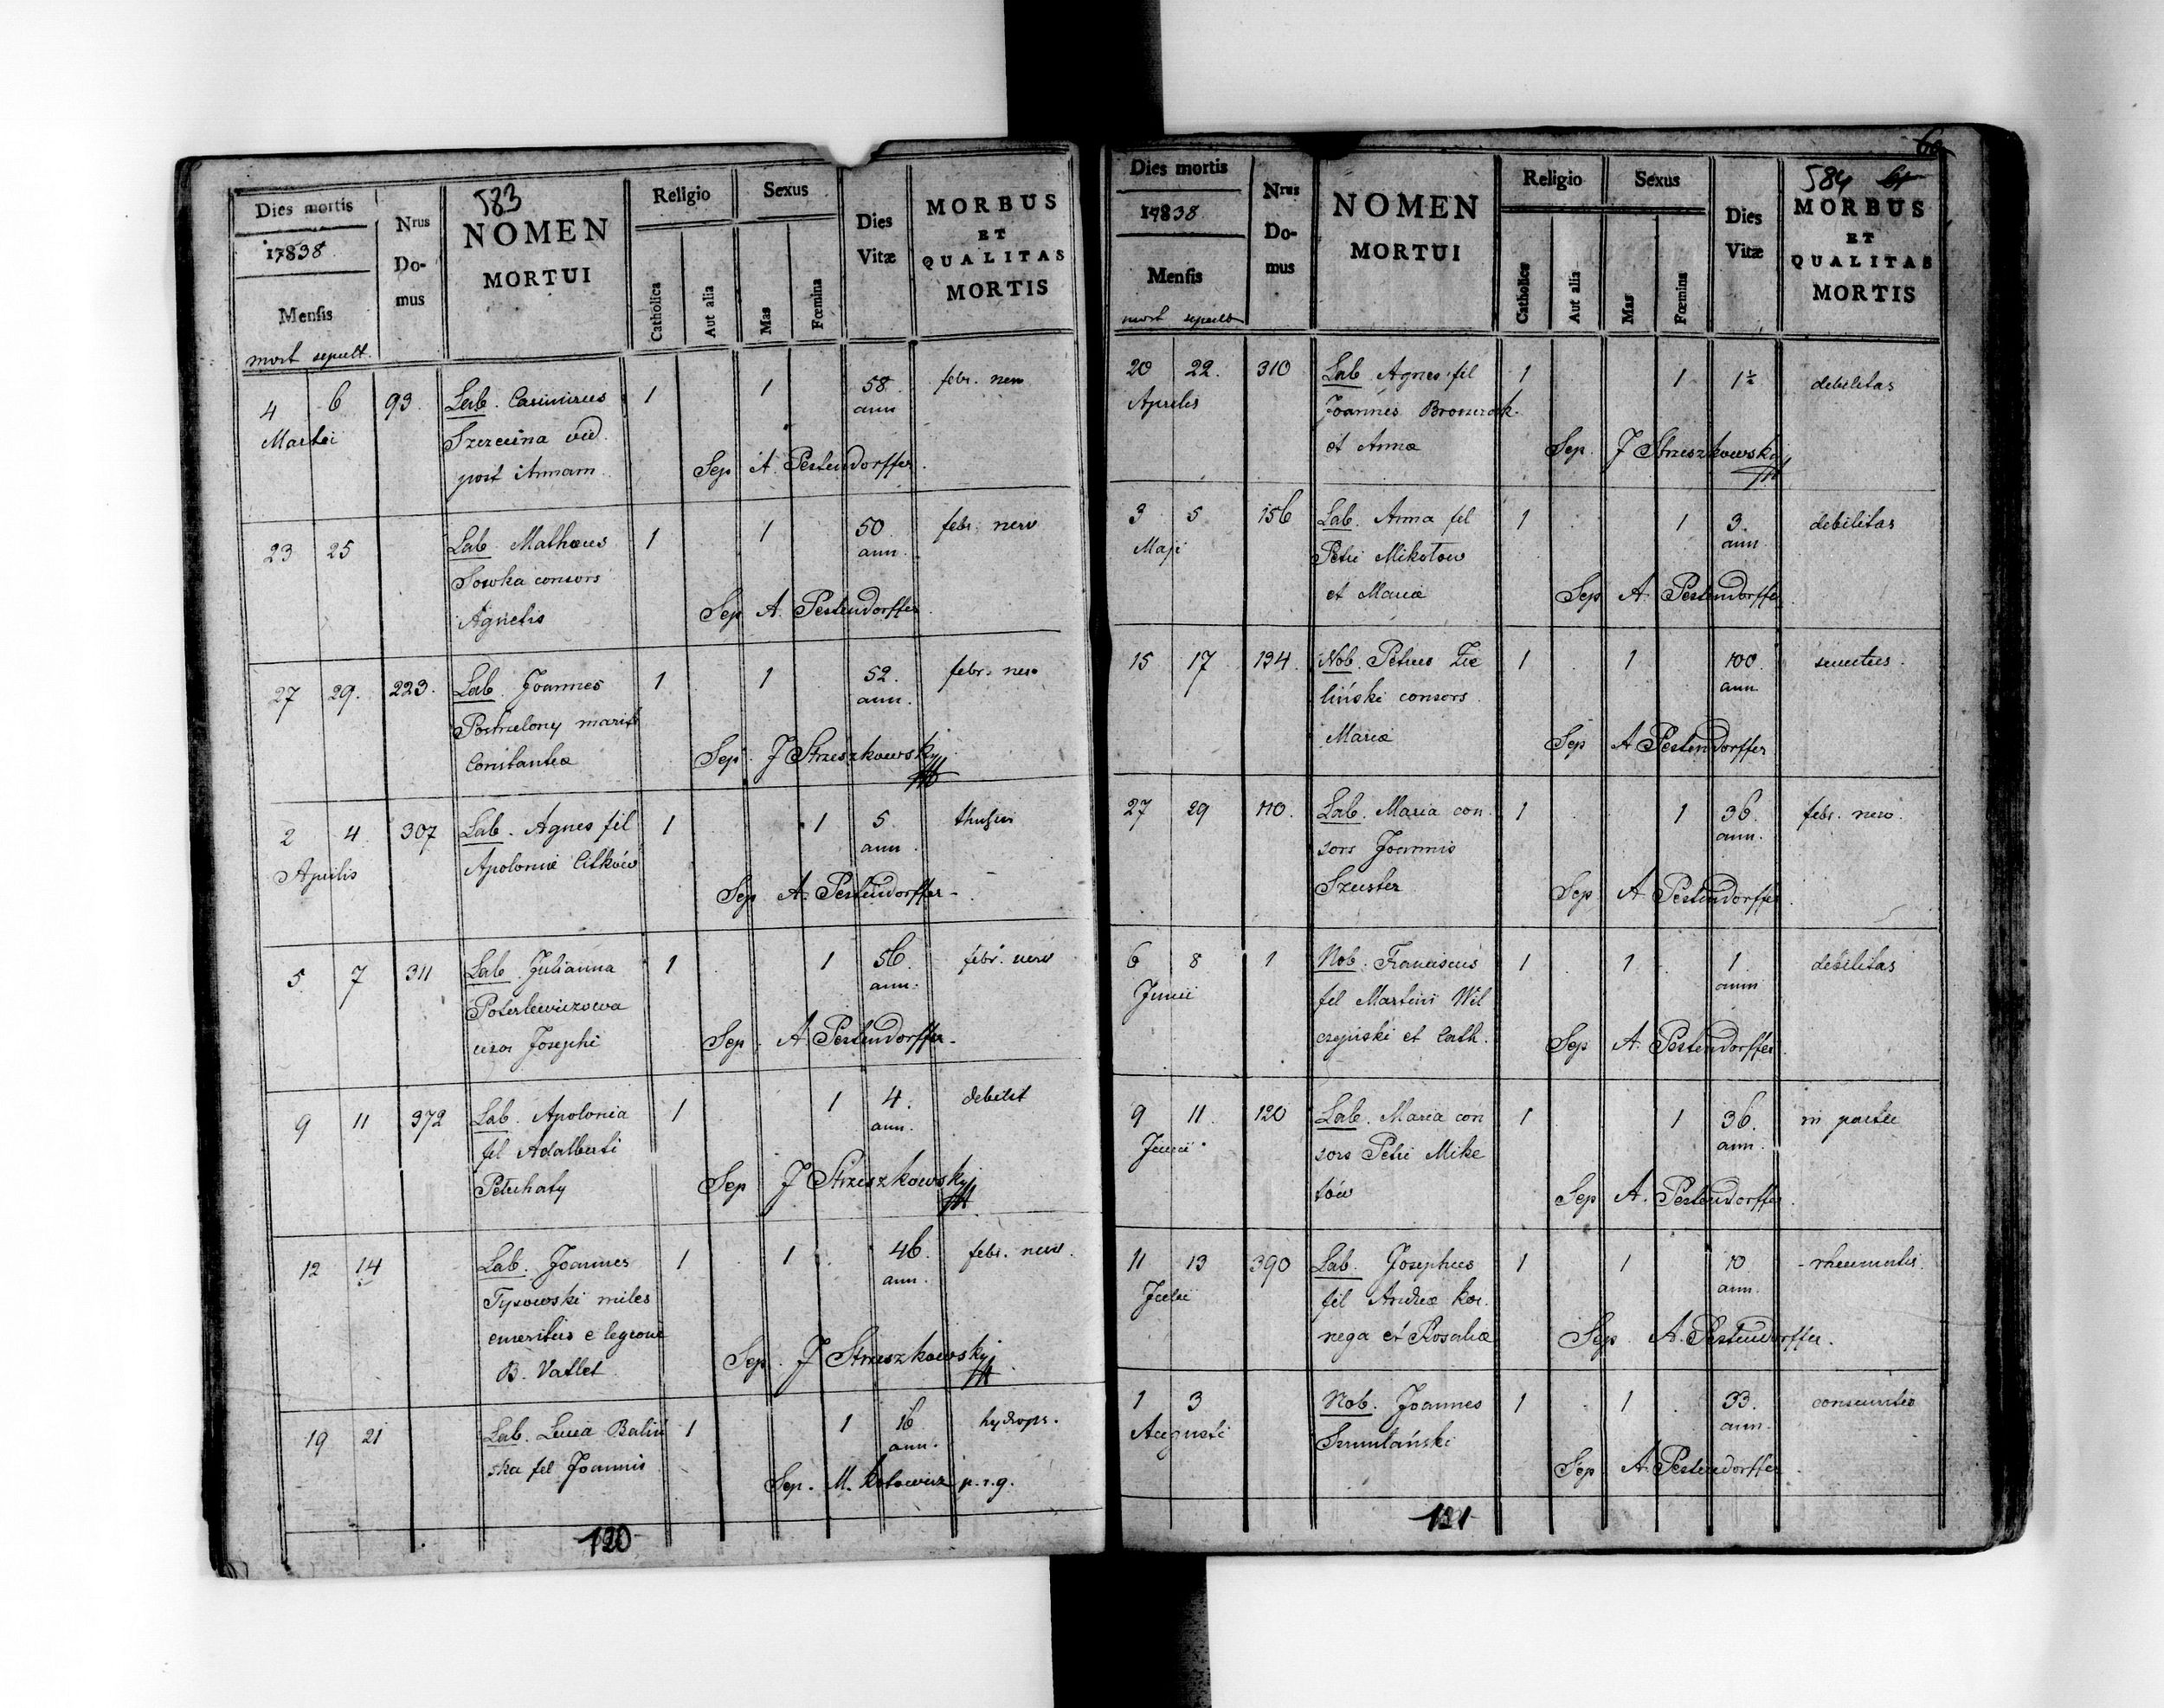 583
Dies mortis
17838
Mensis
mort sepult.
Nrus
Do-
mus
NOMEN
MORTUI
Religio
Catholica
Aut alia
Sexus
Mas
Fœmina
Dies
Vitæ
MORBUS
ET
QUALITAS
MORTIS
4 6 93. Lab. Casimirus 1 1 58 febr. nerv
Martii Szezecina vid. ann
post Annam Sep A. Pestendorffer.
23 25 Lab. Mathæus 1 1 50 febr. nerv
Sowka consors ann.
Agnetis Sep A. Pestendorffer.
27 29. 223. Lab. Joannes 1 1 52. febr. nerv
Postrzelony marit ann.
Constantiæ Sep. J Strzeszkowsky
2 4 307 Lab. Agnes fil 1 1 5
Aprilis Apoloniæ Citków ann.
Sep A. Pestendorffer-
5 7 311 Lab. Julianna 1 1 56. febr. nerv
Poterlewiczowa ann.
uxor Josephi Sep. A Pestendorffer-
9 11 372 Lab. Apolonia 1 1 4. debilit
fil Adalberti ann.
Petuhaty Sep J Strzeszkowsky
12 14 Lab. Joannes 1 1 46. febr. nerv.
Tysowski miles ann.
emeritus e legione
B. Vatlet Sep. J Strzeszkowsky
19 21 Lab. Lucia Baliń 1 1 16 hydrops.
ska fil Joannis ann.
Sep. M. Kotowicz p.r.g.
120
584
Dies mortis
17838
Mensis
mort sepult
Nrus
Do-
mus
NOMEN
MORTUI
Religio
Catholica
Aut alia
Sexus
Mas
Fœmina
Dies
Vitæ
MORBUS
ET
QUALITAS
MORTIS
20 22. 310 Lab. Agnes fil 1 1 1½ debilitas
Aprilis Joannis
et Annæ Sep. J Strzeszkowsky
3 5 156 Lab. Anna fil 1 1 3. debilitas
Maji Petri Mikotow ann
et Mariæ Sep A. Pestendorffer
15 17 134. Nob. Petrus Zie 1 1 100. senectus.
liński consors ann.
Mariæ Sep A Pestendorffer
27 29 110. Lab. Maria con 1 1 36. febr. nerv.
sors Joannis ann.
Szuster Sep A Pestendorffer.
6 8 1 Nob. Franciscus 1 1 1. debilitas
Junii fil Martini Wil ann
czyński et Cath. Sep A. Pestendorffer
9 11. 120 Lab. Maria con 1 1 36. in partu
Junii sors Petri Mike ann.
tów Sep A. Pestendorffer.
11 13 390 Lab. Josephus 1 1 10
Julii fil Andreæ Kor. ann.
nega et Rosaliæ Sep. A. Pestendorffer.
1 3 Nob. Joannes 1 1 33.
Augusti Szumlański ann.
Sep. A. Pestendorffer.
121